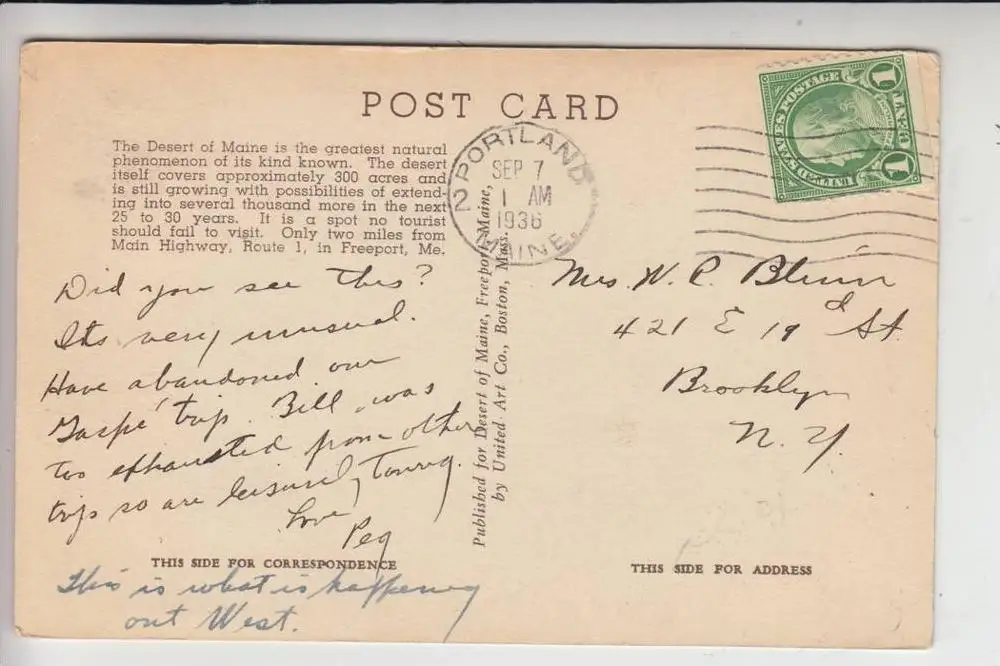 POST CARD
The Desert of Maine is the greatest natural
phenomenon of its kind known. The desert
itself covers approximately 300 acres and
is still growing with possibilities of extend-
ing into several thousand more in the next
25 to 30 years. It is a spot no tourist
should fail to visit. Only two miles from
Main Highway, Route 1, in Freeport, Me.
PORTLAND
2
SEP 7
1 AM
1936
MAINE.
UNITED STATES POSTAGE
1 CENT 1
Did you see this?
Its very unusual.
Have abandoned our
Gaspé trip. Bill was
too exhausted from other
trip so are leisurely touring.
Love
Peg
THIS SIDE FOR CORRESPONDENCE
This is what is happening
out West.
Published for Desert of Maine, Freeport, Maine,
by United Art Co., Boston, Mass.
Mrs. W. P.
421 E 19 St.
Brooklyn
N. Y.
THIS SIDE FOR ADDRESS